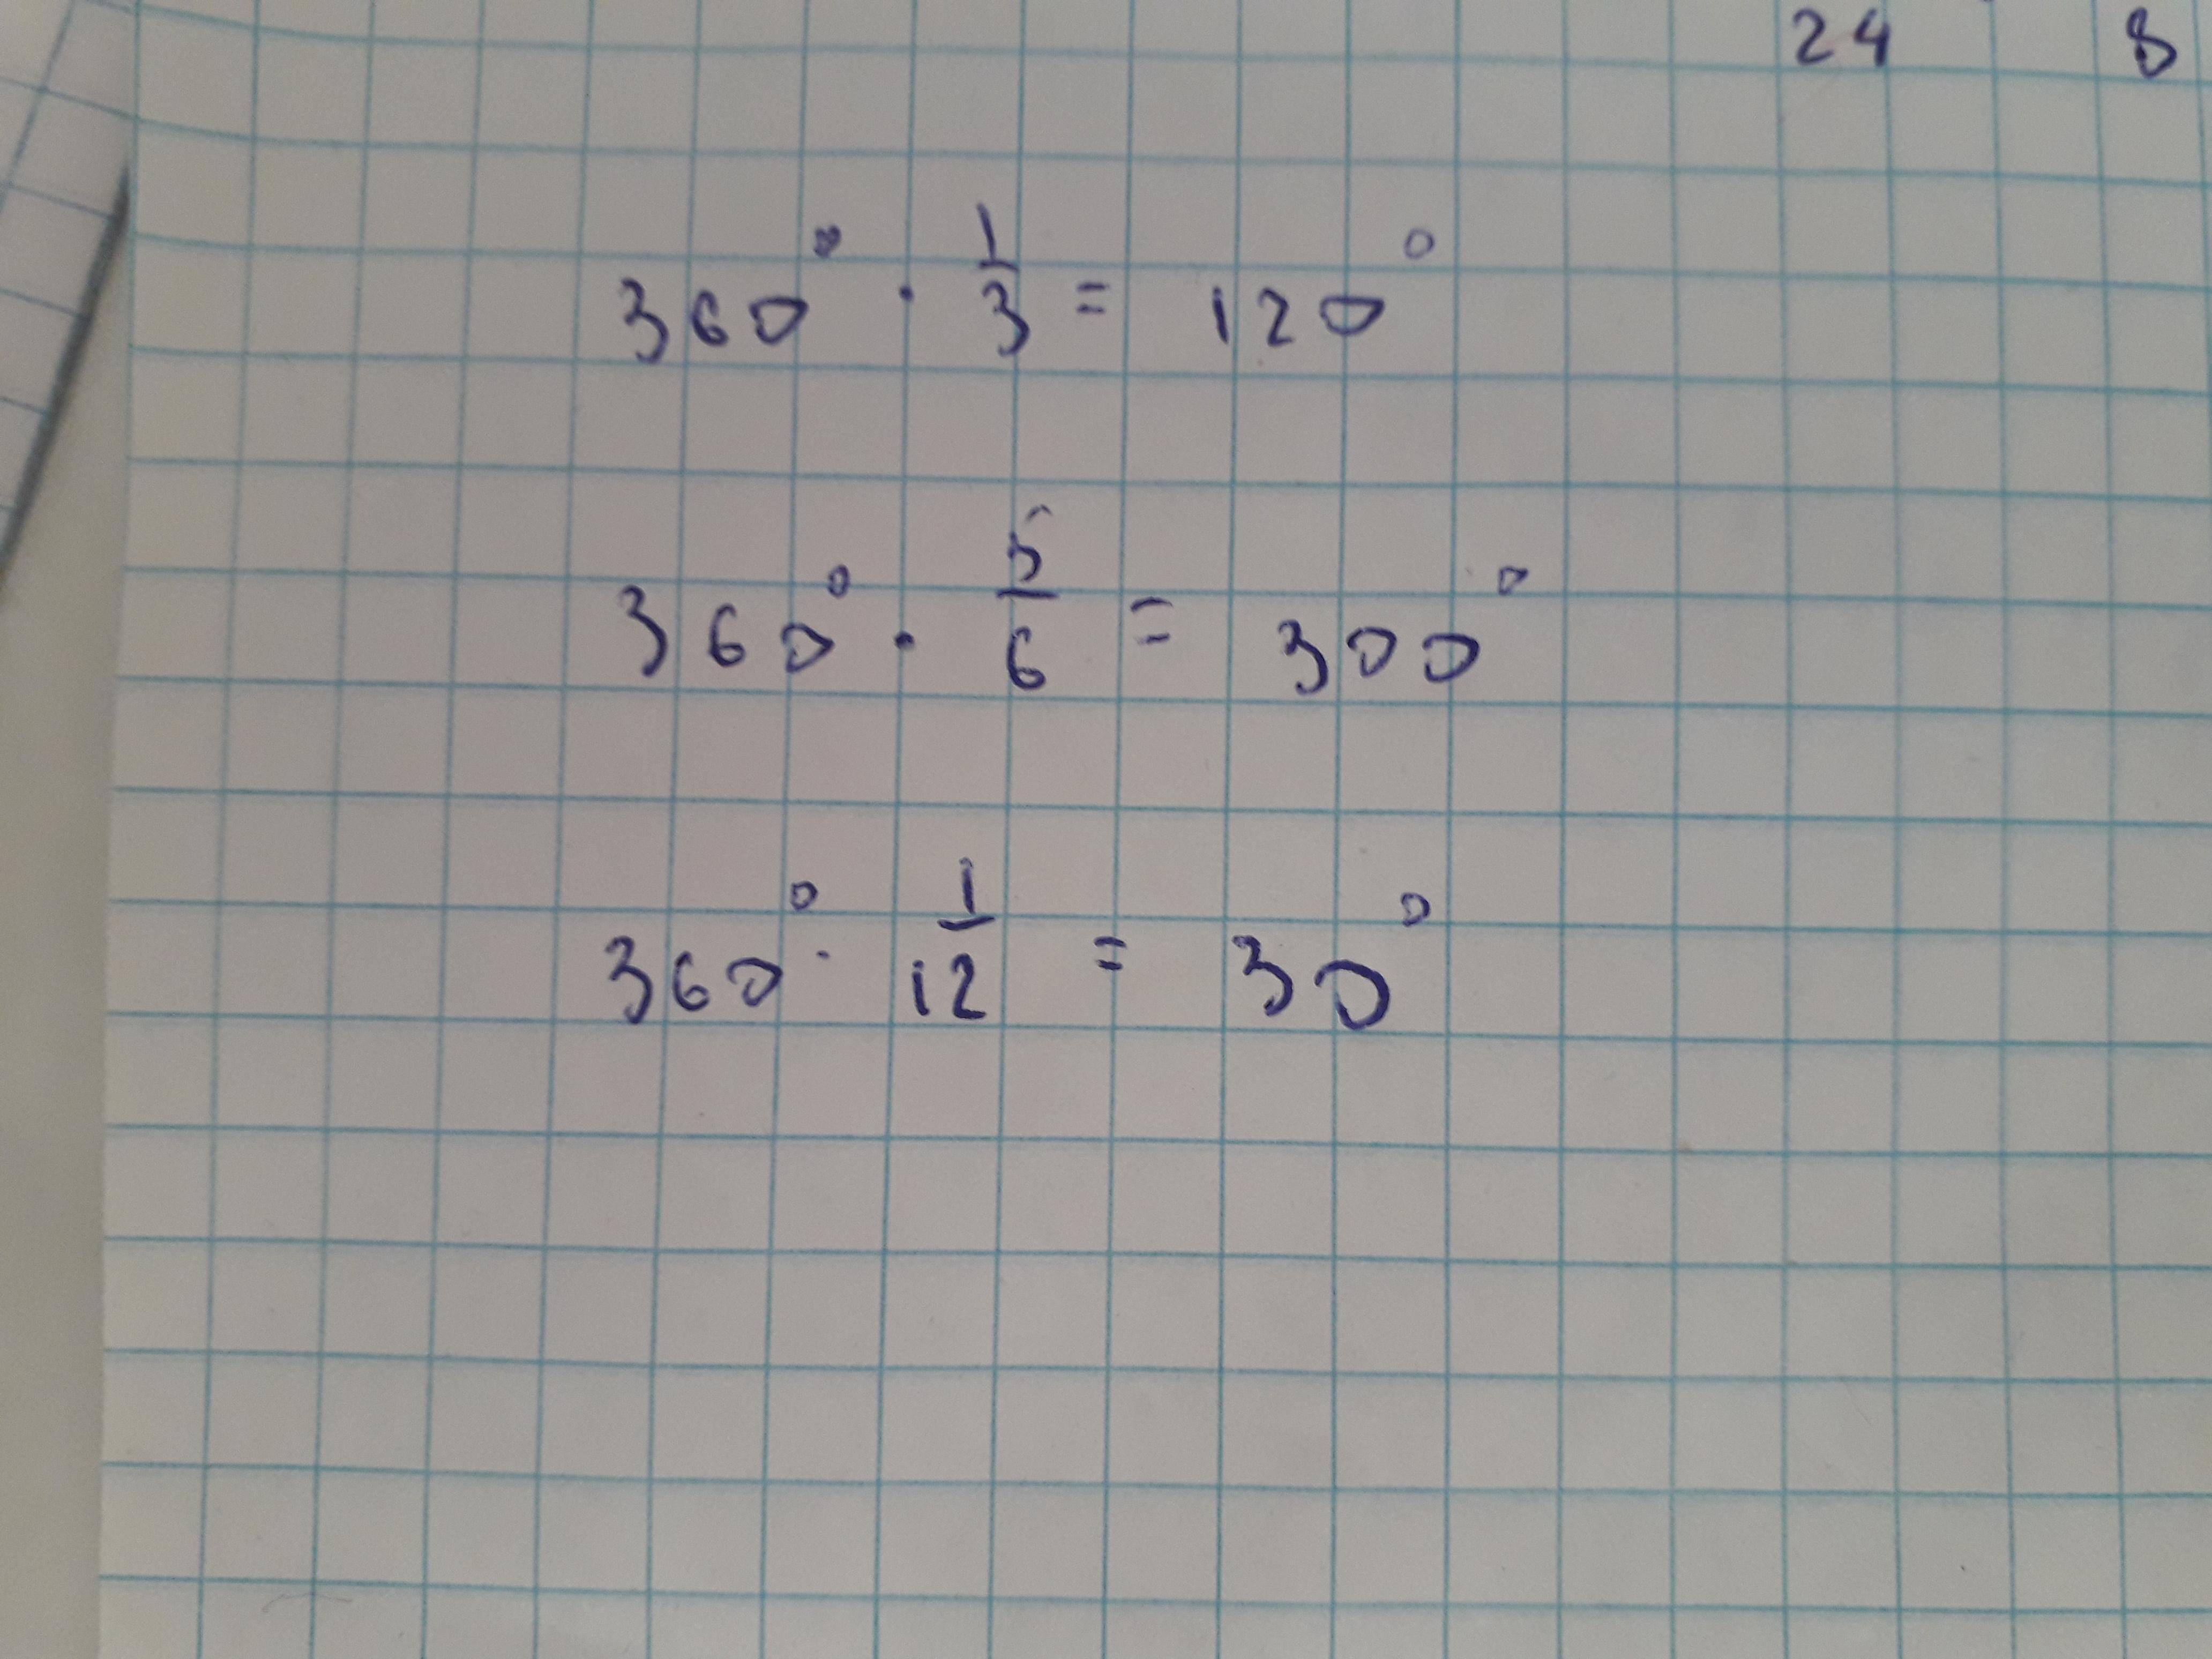 24 8
360° · 1/3 = 120°
360° · 5/6 = 300°
360° · 1/12 = 30°